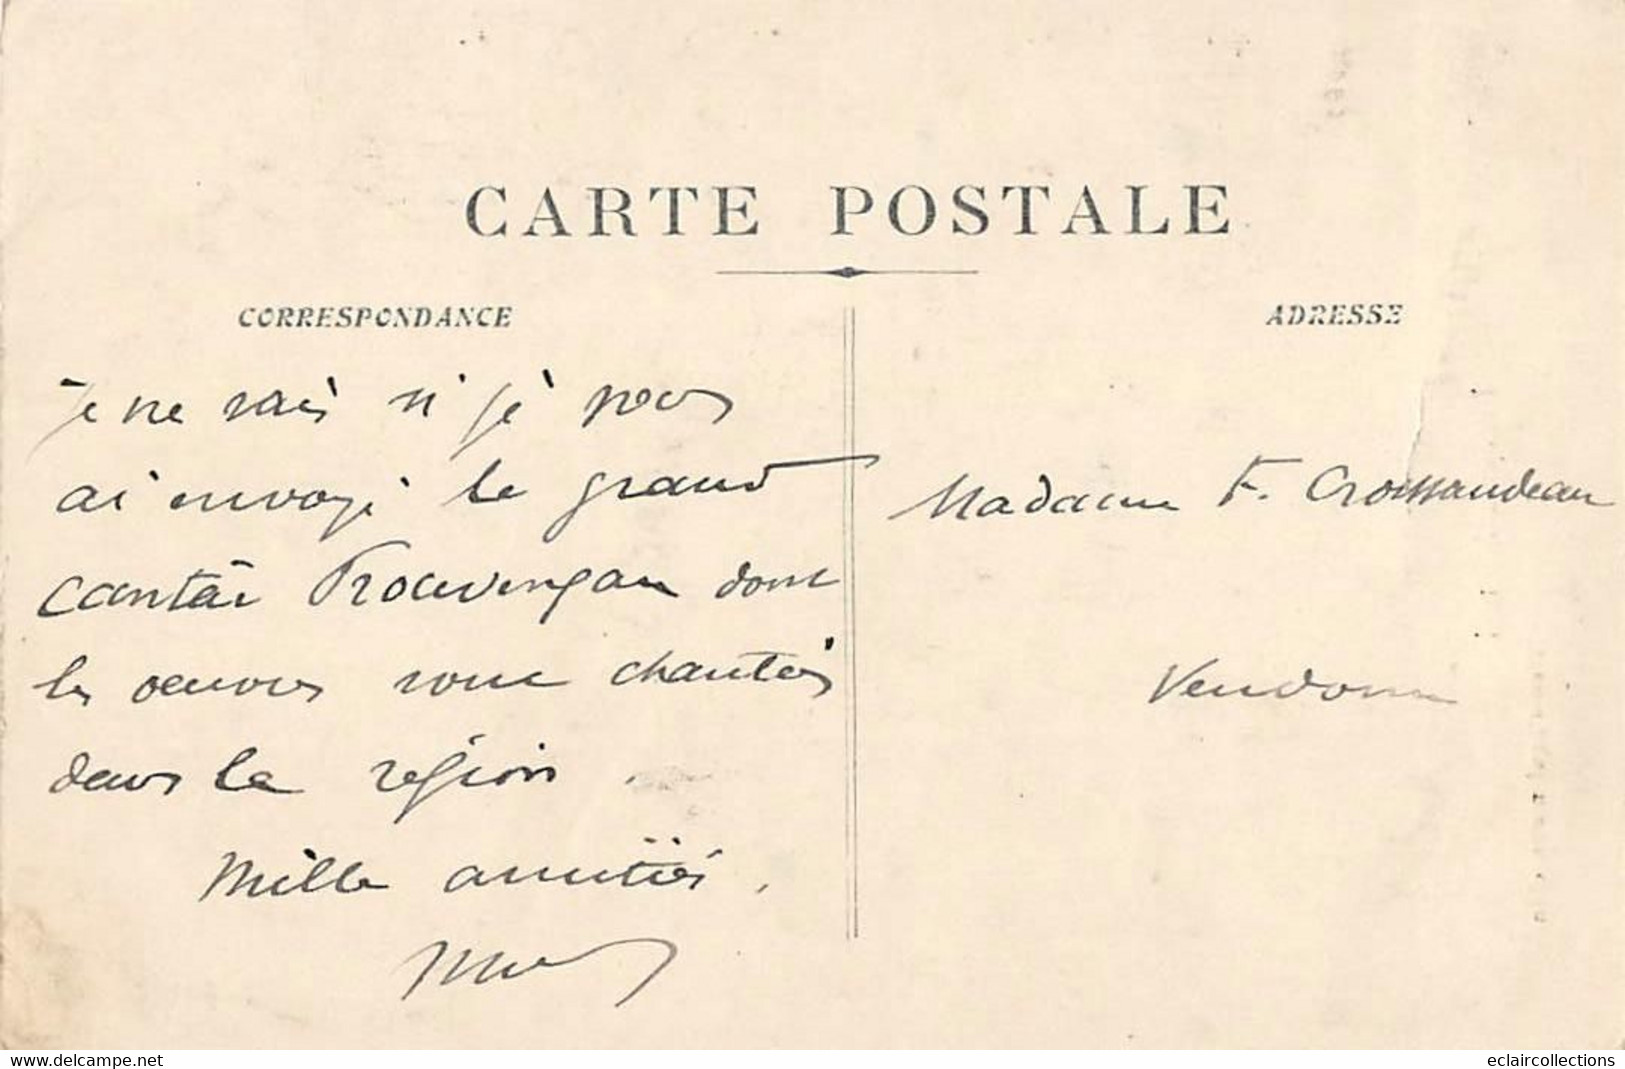 CARTE POSTALE
CORRESPONDANCE
ADRESSE
je ne sais si je vous
ai envoyé le grand
cantaïre Prouvençau dont
les oeuvres sont chantées
dans la région.
Mille amitiés.
Madame F. Croissandeau
Vendome
www.delcampe.net
eclaircollections